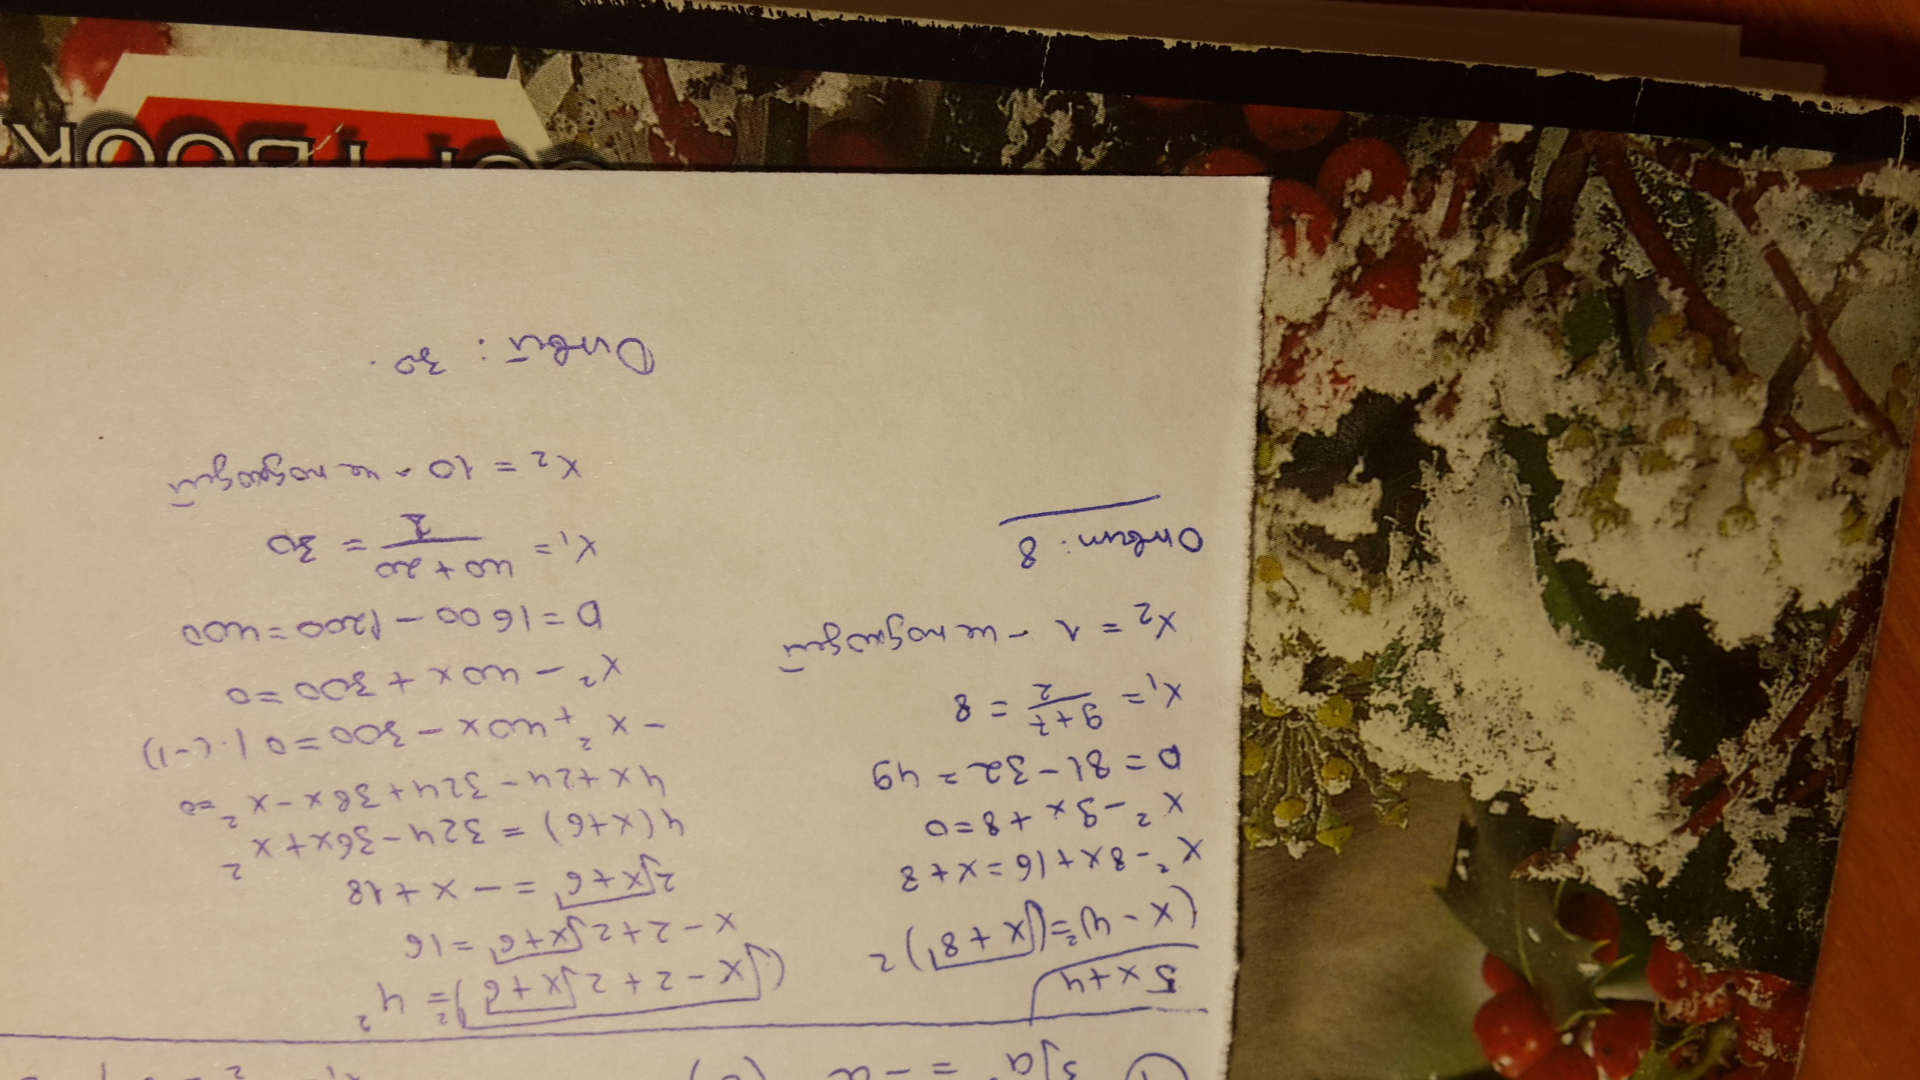 5x+4
(x-4)²=(√x+8)²
x²-8x+16=x+8
x²-9x+8=0
D=81-32=49
x₁=9+7/2=8
x₂=1-не подходит
Ответ: 8
(√x-2+2√x+6)²=4²
x-2+2√x+6=16
2√x+6=-x+18
4(x+6)=324-36x+x²
4x+24-324+36x-x²=0
-x²+40x-300=0 |·(-1)
x²-40x+300=0
D=1600-1200=400
x₂=10-не подходит
Ответ: 30.